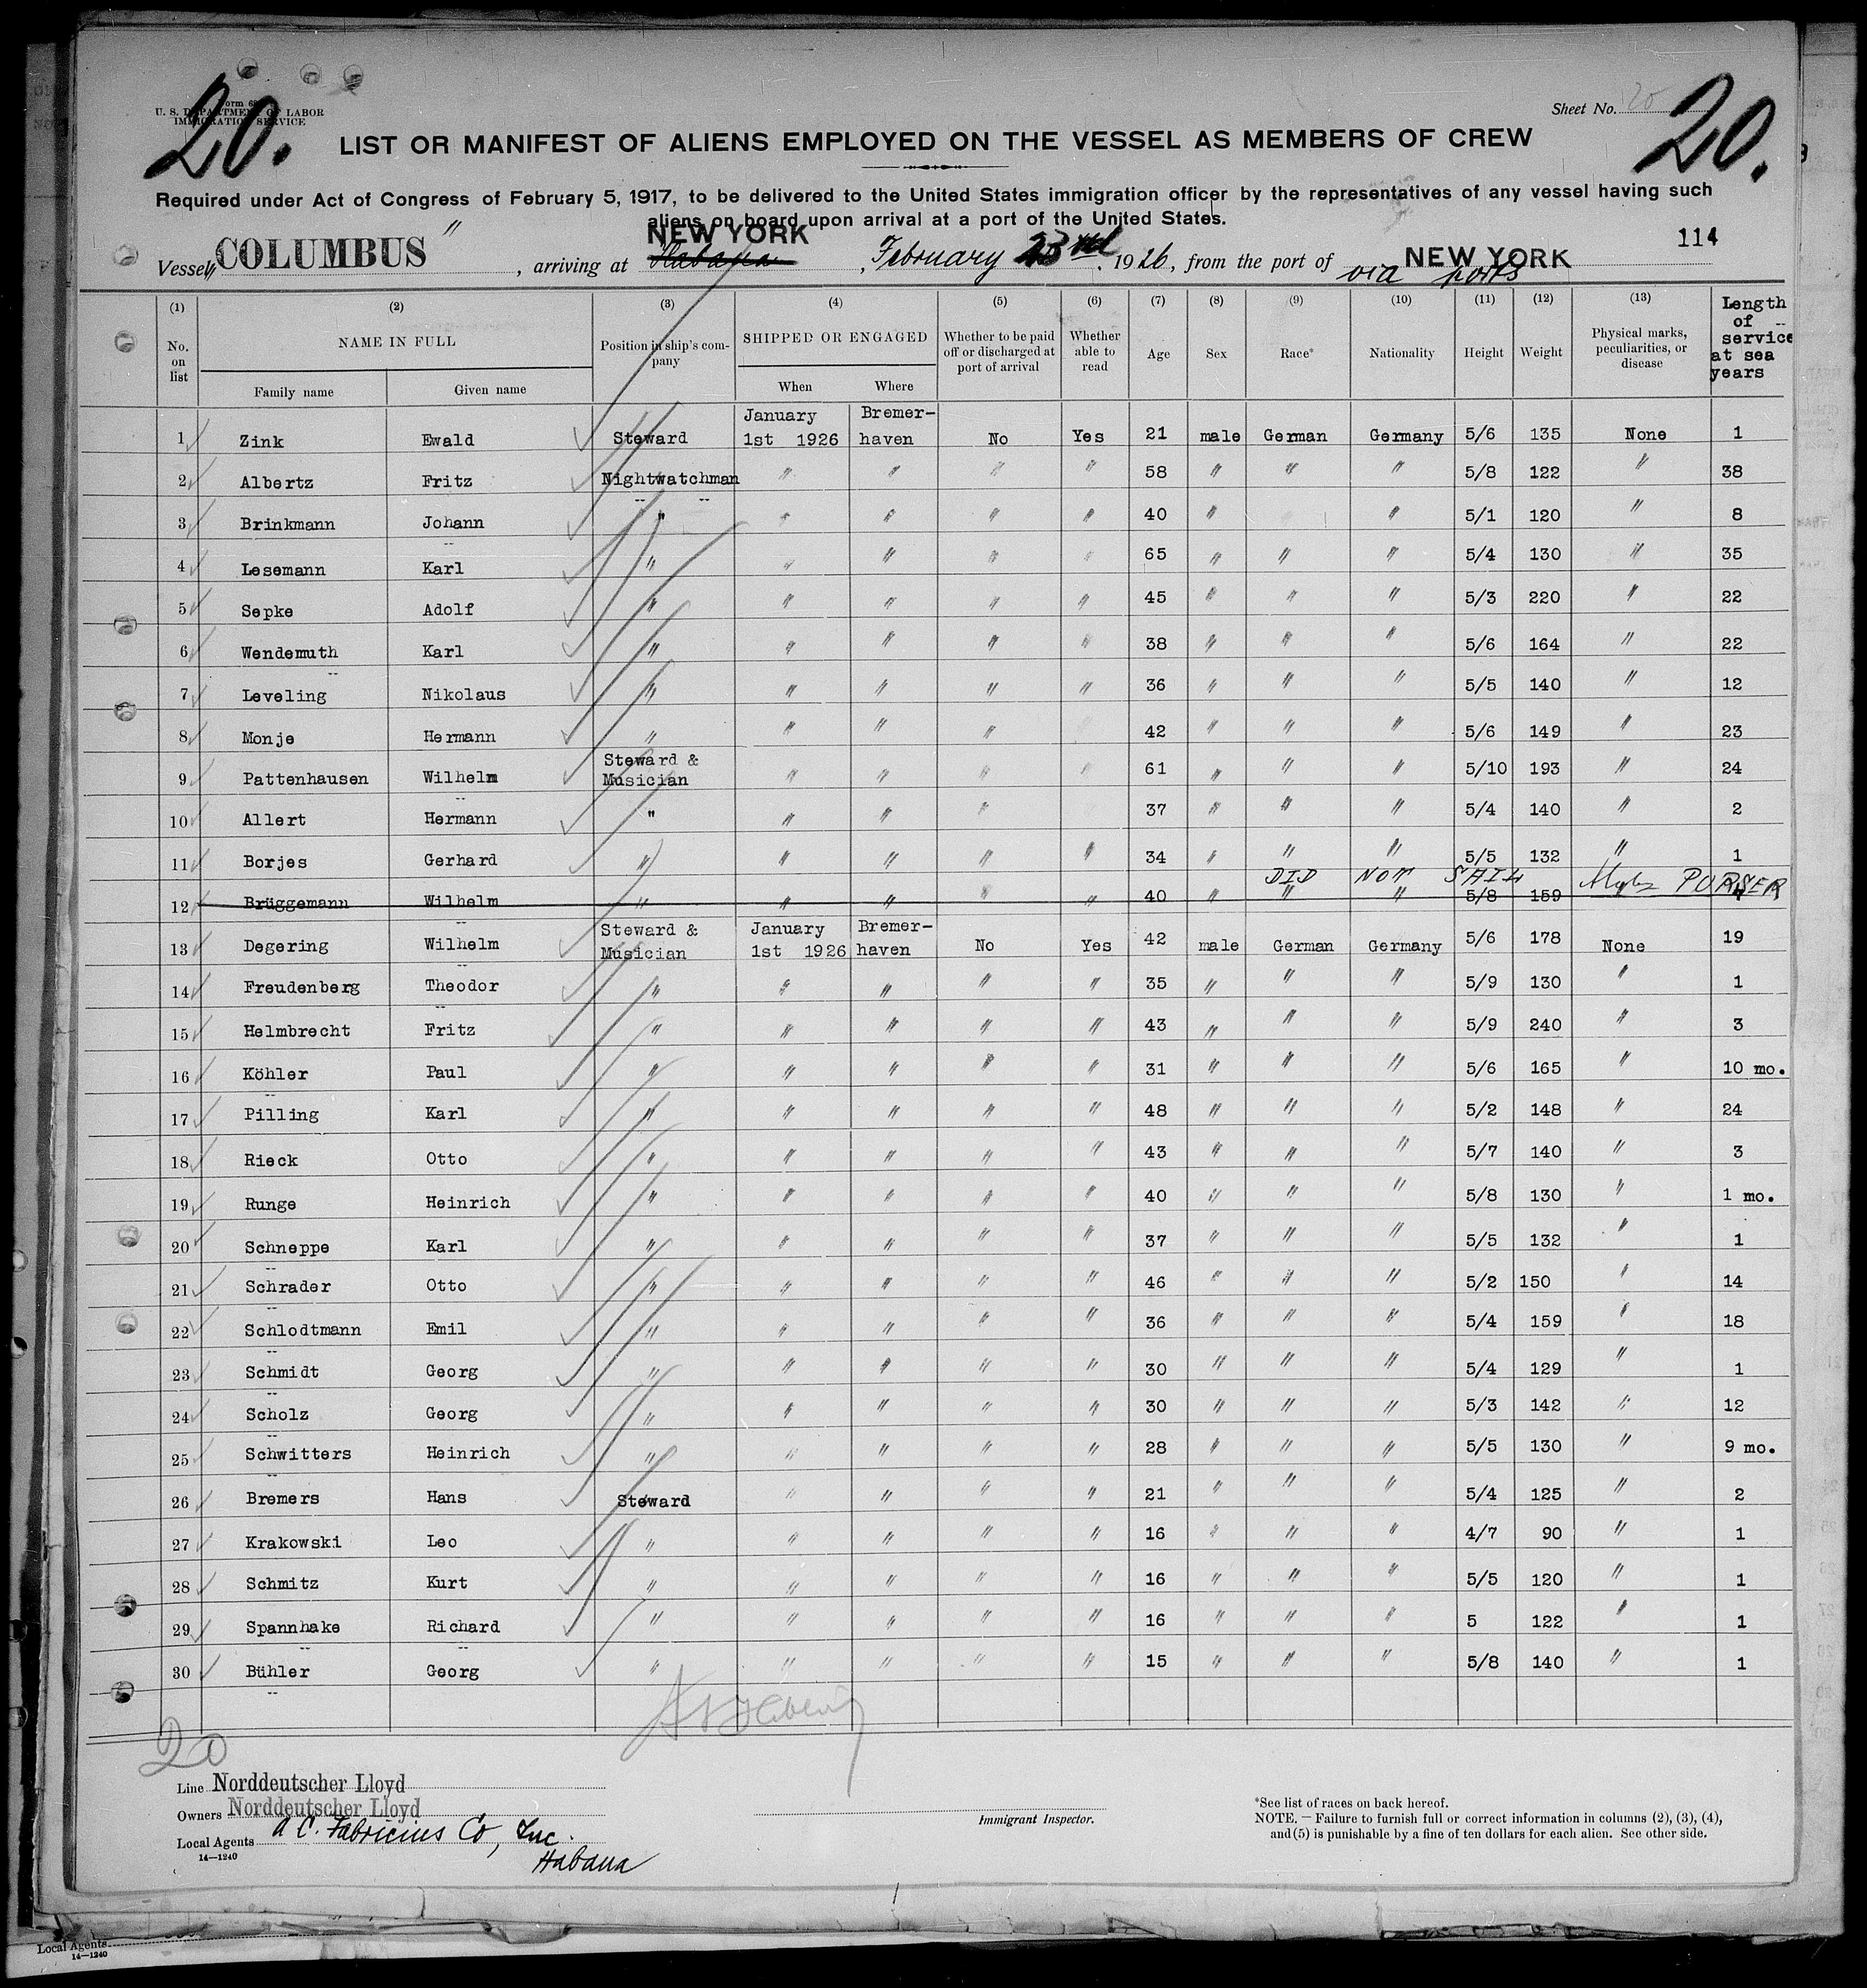 20.
Form 68
U. S. DEPARTMENT OF LABOR
IMMIGRATION SERVICE
Sheet No. 20
20.
LIST OR MANIFEST OF ALIENS EMPLOYED ON THE VESSEL AS MEMBERS OF CREW
Required under Act of Congress of February 5, 1917, to be delivered to the United States immigration officer by the representatives of any vessel having such
aliens on board upon arrival at a port of the United States.
114
Vessel "COLUMBUS", arriving at Habana NEW YORK, February 23rd, 1926, from the port of NEW YORK
via ports
(1) (2) (3) (4) (5) (6) (7) (8) (9) (10) (11) (12) (13)
No. on list NAME IN FULL Family name Given name Position in ship's company SHIPPED OR ENGAGED When Where Whether to be paid off or discharged at port of arrival Whether able to read Age Sex Race* Nationality Height Weight Physical marks, peculiarities, or disease Length of service at sea years
1 Zink Ewald Steward January 1st 1926 Bremerhaven No Yes 21 male German Germany 5/6 135 None 1
2 Albertz Fritz Nightwatchman " " " " 58 " " " 5/8 122 " 38
3 Brinkmann Johann " " " " " 40 " " 5/1 120 " 8
4 Lesemann Karl " " " " " 65 " " " 5/4 130 " 35
5 Sepke Adolf " " " " " 45 " " " 5/3 220 " 22
6 Wendemuth Karl " " " " " 38 " " " 5/6 164 " 22
7 Leveling Nikolaus " " " " " 36 " " " 5/5 140 " 12
8 Monje Hermann " " " " 42 " " " 5/6 149 " 23
9 Pattenhausen Wilhelm Steward & Musician " " " " 61 " " " 5/10 193 " 24
10 Allert Hermann " " " " 37 " " " 5/4 140 " 2
11 Borjes Gerhard " " " " " 34 " " " 5/5 132 " 1
DID NOT SAIL PURSER
12 Brüggemann Wilhelm " " " " " 40 " " " 5/8 159
13 Degering Wilhelm Steward & Musician January 1st 1926 Bremerhaven No Yes 42 male German Germany 5/6 178 None 19
14 Freudenberg Theodor " " " " " 35 " " " 5/9 130 " 1
15 Helmbrecht Fritz " " " " " 43 " " " 5/9 240 " 3
16 Köhler Paul " " " " " 31 " " " 5/6 165 " 10 mo.
17 Pilling Karl " " " " " 48 " " " 5/2 148 " 24
18 Rieck Otto " " " " " 43 " " " 5/7 140 " 3
19 Runge Heinrich " " " " " 40 " " " 5/8 130 " 1 mo.
20 Schneppe Karl " " " " " 37 " " " 5/5 132 " 1
21 Schrader Otto " " " " " 46 " " " 5/2 150 " 14
22 Schlodtmann Emil " " " " " 36 " " " 5/4 159 " 18
23 Schmidt Georg " " " " " 30 " " " 5/4 129 " 1
24 Scholz Georg " " " " " 30 " " " 5/3 142 " 12
25 Schwitters Heinrich " " " " " 28 " " " 5/5 130 " 9 mo.
26 Bremers Hans Steward " " " " 21 " " " 5/4 125 " 2
27 Krakowski Leo " " " " " 16 " " " 4/7 90 " 1
28 Schmitz Kurt " " " " " 16 " " " 5/5 120 " 1
29 Spannhake Richard " " " " " 16 " " " 5 122 " 1
30 Bühler Georg " " " " " 15 " " " 5/8 140 " 1
20
Line Norddeutscher Lloyd
Owners Norddeutscher Lloyd
Local Agents A C. Fabricius Co, Inc.
Habana
14—1240
Immigrant Inspector.
*See list of races on back hereof.
NOTE.—Failure to furnish full or correct information in columns (2), (3), (4),
and (5) is punishable by a fine of ten dollars for each alien. See other side.
Local Agents
14—1240